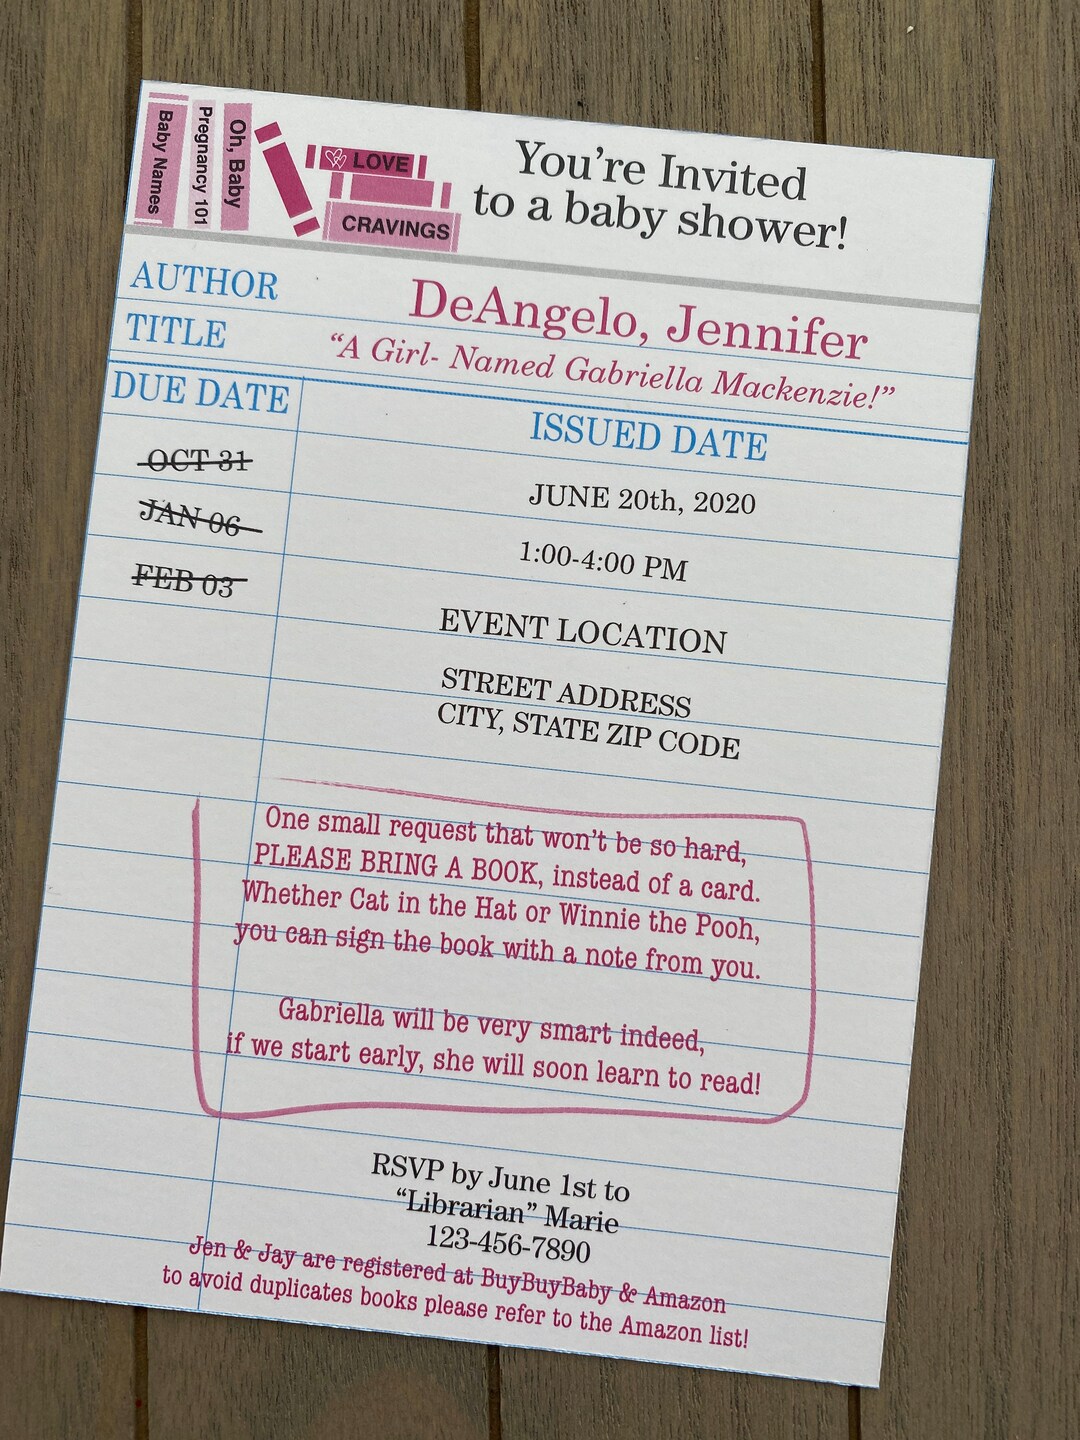 Baby Names
Pregnancy 101
Oh, Baby
LOVE
CRAVINGS
You're Invited
to a baby shower!
AUTHOR
DeAngelo, Jennifer
TITLE
"A Girl- Named Gabriella Mackenzie!"
DUE DATE
ISSUED DATE
OCT 31
JUNE 20th, 2020
JAN 06
1:00-4:00 PM
FEB 03
EVENT LOCATION
STREET ADDRESS
CITY, STATE ZIP CODE
One small request that won't be so hard,
PLEASE BRING A BOOK, instead of a card.
Whether Cat in the Hat or Winnie the Pooh,
you can sign the book with a note from you.
Gabriella will be very smart indeed,
if we start early, she will soon learn to read!
RSVP by June 1st to
"Librarian" Marie
123-456-7890
Jen & Jay are registered at BuyBuyBaby & Amazon
to avoid duplicates books please refer to the Amazon list!